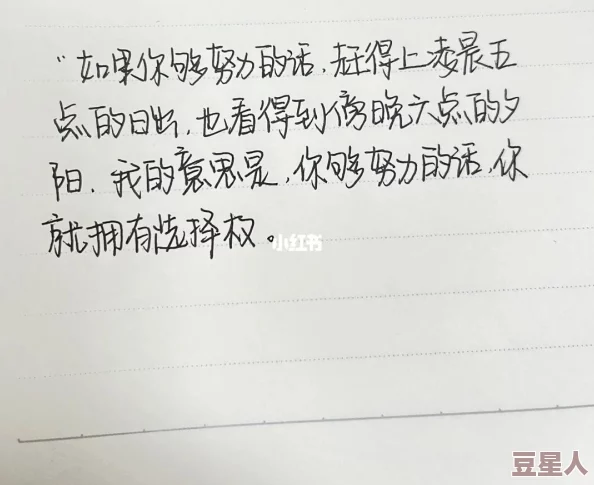 "如果你够努力的话,赶得上凌晨五
点的日出,也看得到傍晚六点的夕
阳.我的意思是,你够努力的话,你
就拥有选择权。
小红书
豆星人